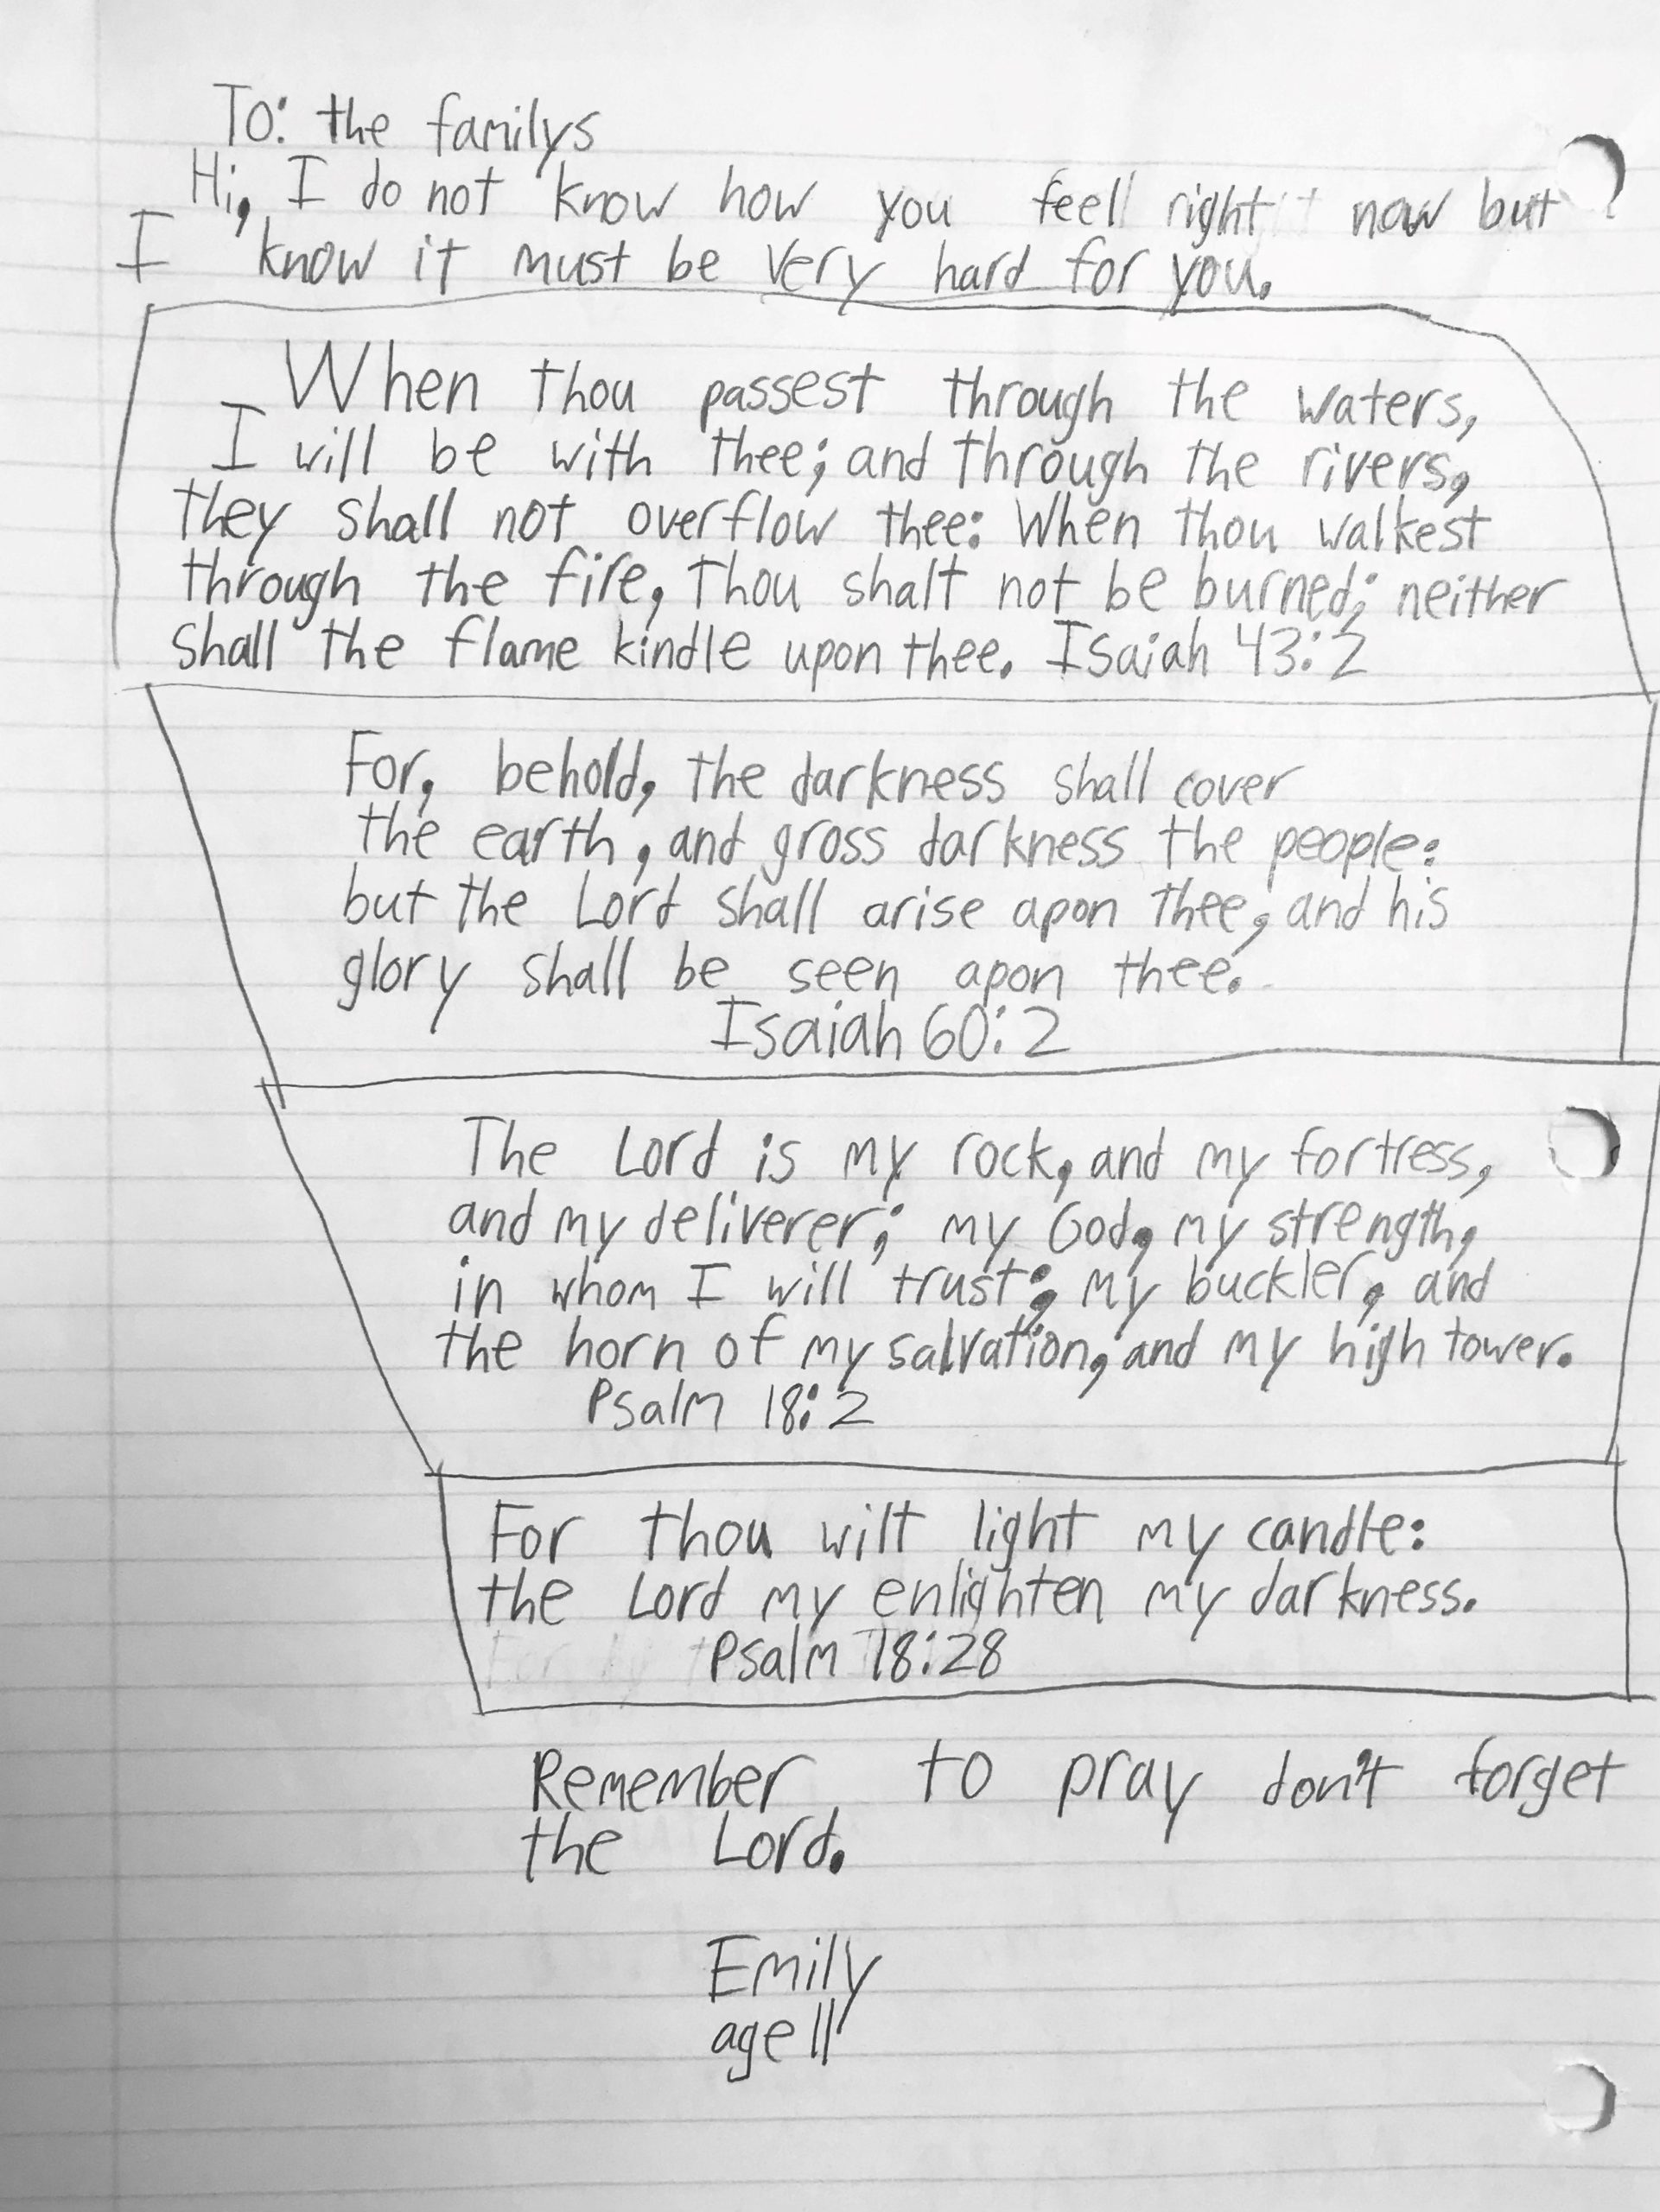 To: the familys
Hi, I do not know how you feel right now but
I know it must be very hard for you.
When thou passest through the waters,
I will be with thee; and through the rivers,
they shall not overflow thee: When thou walkest
through the fire, thou shalt not be burned; neither
shall the flame kindle upon thee. Isaiah 43:2
For, behold, the darkness shall cover
the earth, and gross darkness the people:
but the Lord shall arise apon thee, and his
glory shall be seen apon thee.
Isaiah 60:2
The Lord is my rock, and my fortress,
and my deliverer; my God, my strength,
in whom I will trust; my buckler, and
the horn of my salvation, and my high tower.
Psalm 18:2
For thou wilt light my candle:
the Lord my enlighten my darkness.
Psalm 18:28
Remember to pray don't forget
the Lord.
Emily
age 11